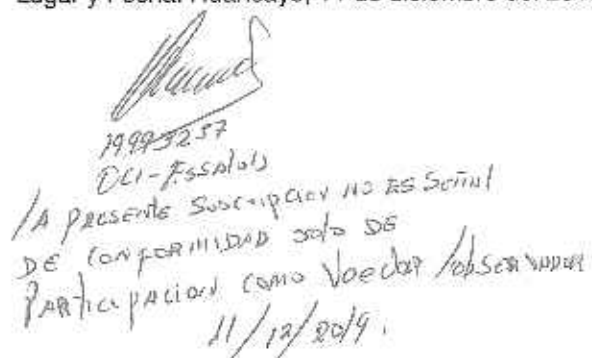 Lugar y Fecha: Huancayo, 11 de diciembre del 201
19993237
OCI-ESSALUD
LA PRESENTE SUSCRIPCION NO ES Señal
DE CONFORMIDAD solo DE
PARTICIPACION COMO Veedor/observador
11/12/2019.